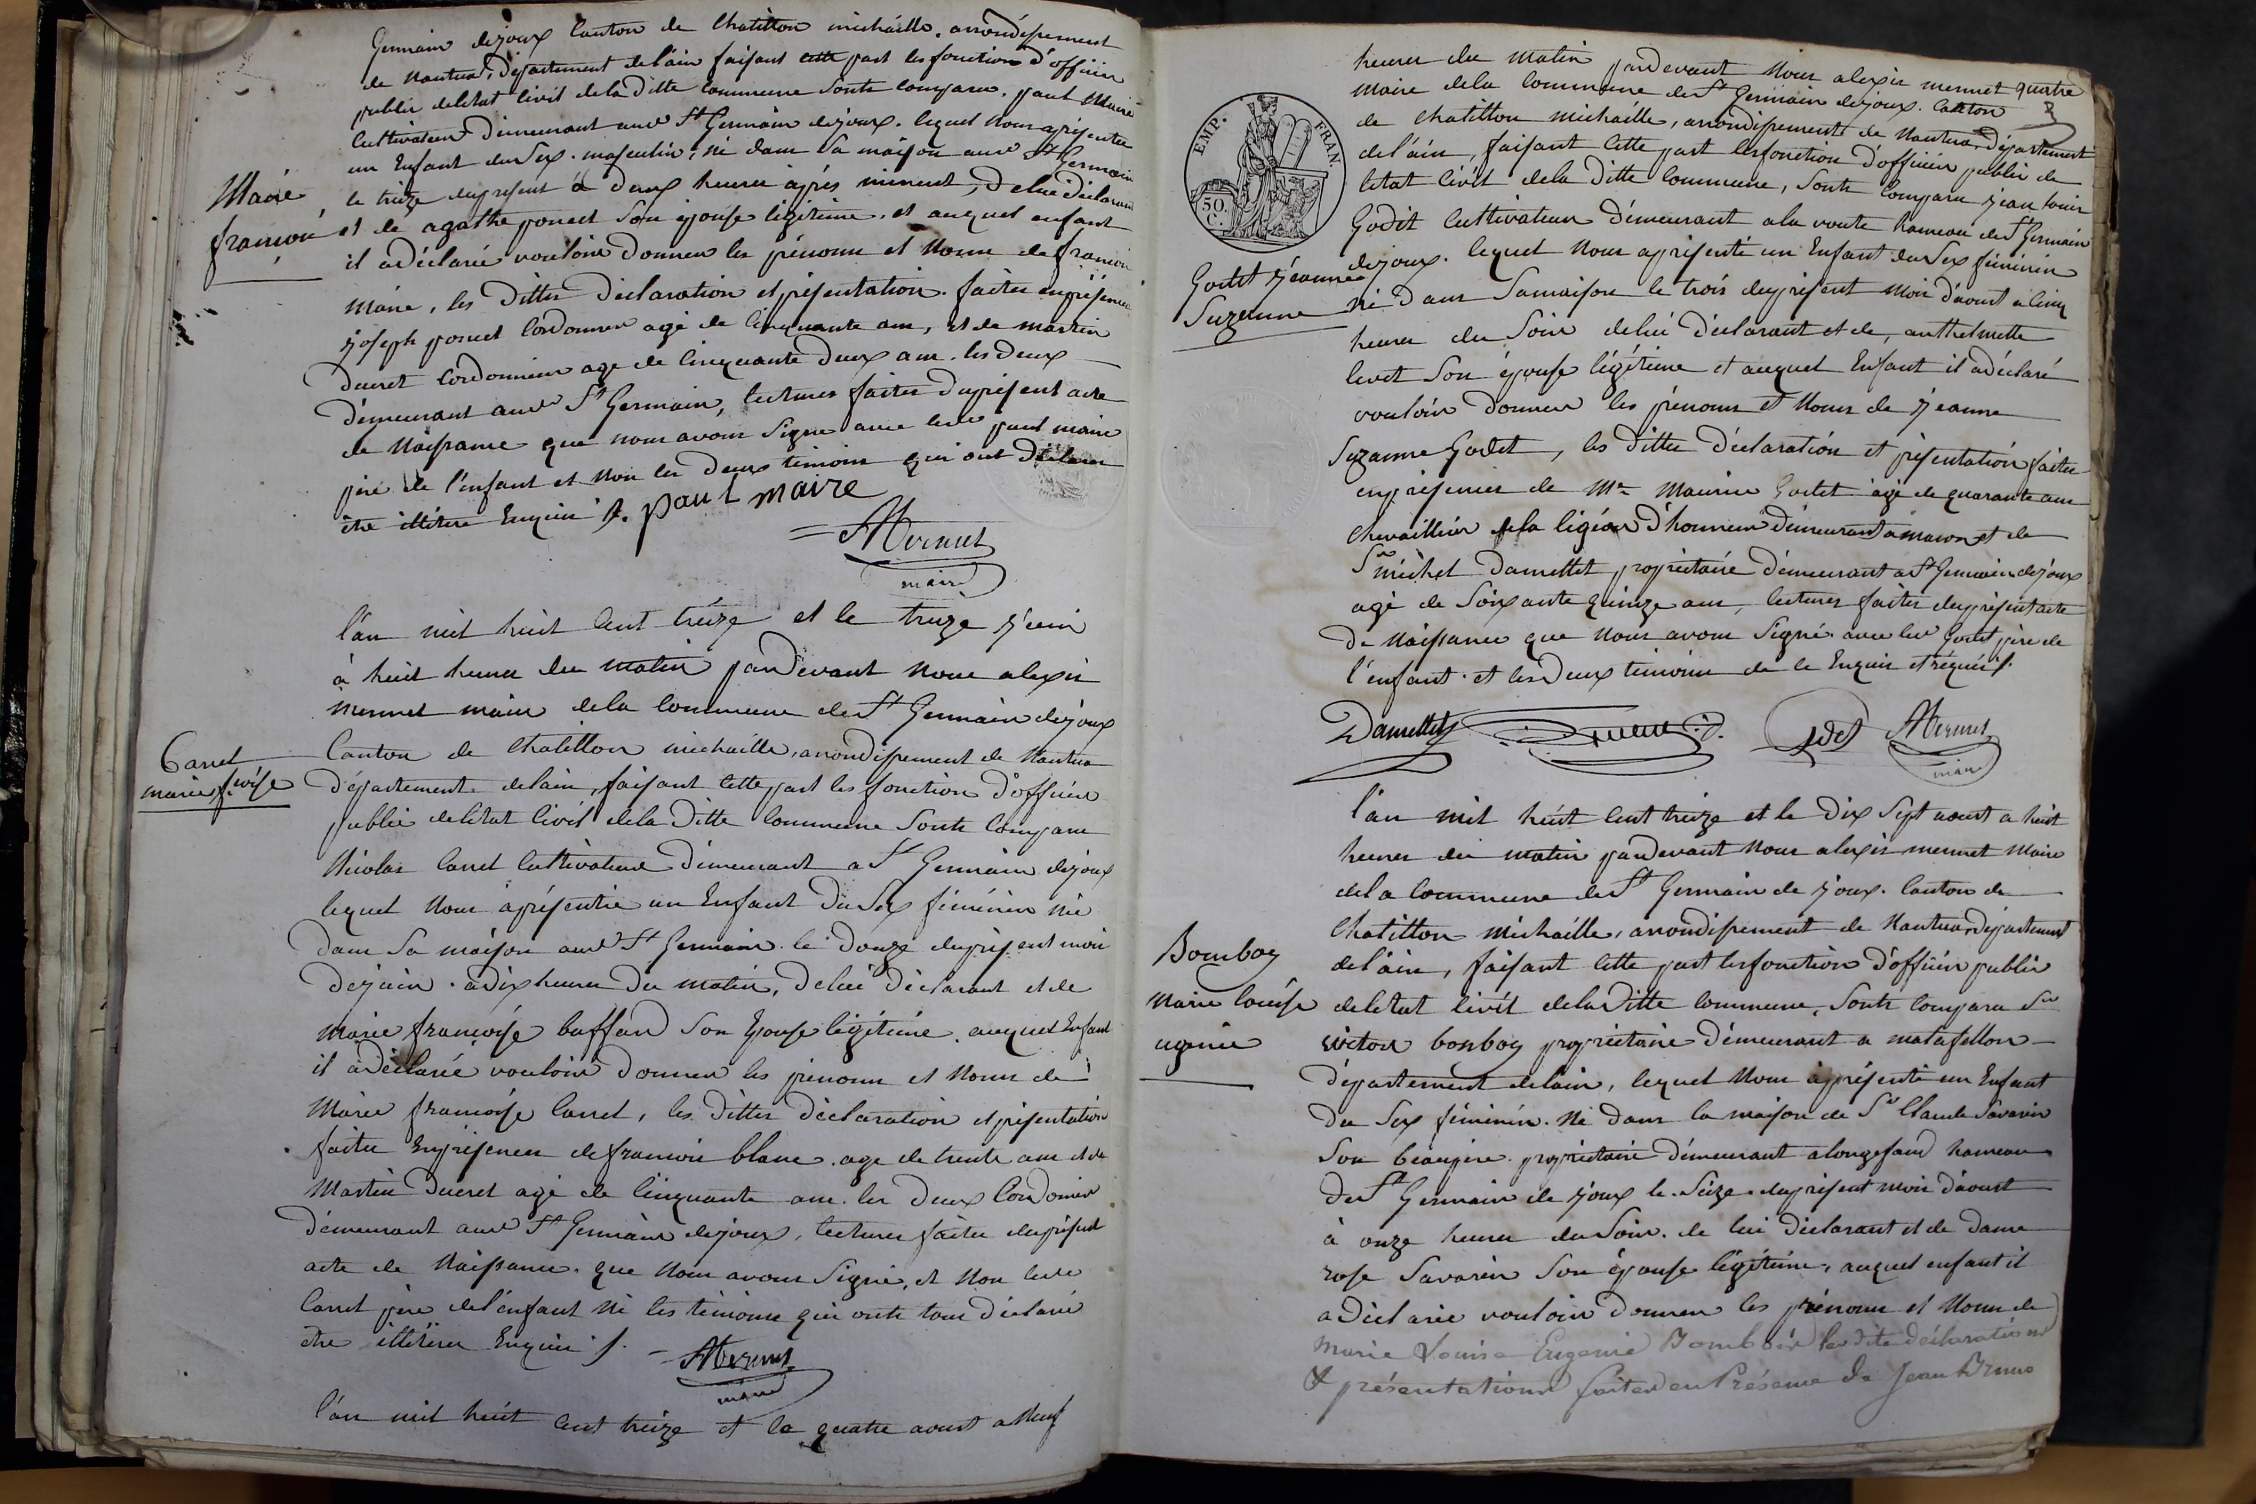 Germain dejoux Canton de Chatillon michaille, arrondissement
de Nantua, département delain faisant cette part les fonction d'officier
public deletat Civil dela ditte commune sonte comparu. paul maire
Cultivateur demeurant aud St Germain dejoux. lequel nous a présenté
un Enfant du sex. masculin, né dans sa maison aud St Germain
le treize du présent à deux heures après minuit, delui déclarant
et de agathe poncet son épouse légitime. et auquel enfant
il a déclaré vouloir donner les prénoms et Noms de francois
Maire, les dittes déclaration et présentation. faites en présence
joseph poncet Cordonnier agé de Cinquante ans, et de martin
ducret Cordonnier age de Cinquante deux ans. les deux
démeurant aud St Germain, lectures faites du présent acte
de Naissance que nous avons signé avec led paul maire
père de l'enfant et Non les deux temoins qui ont déclaré
être illitéré Enquis /. paul maire
AMermet
maire
Maire
francois
l'an mil huit Cent treize et le treize juin
à huit heures du matin pardevant nous alexis
mermet maire dela Commune de St Germain dejoux
Canton de Chatillon michaille, arrondissement de Nantua
département delain, faisant cette part les fonction d'officier
public deletat Civil dela ditte Commune sonte Comparu
Nicolas Carret Cultivateur démeurant a St Germain dejoux
lequel Nous a présenté un Enfant du sex féminin né
dans sa maison aud St Germain. le douze du présent mois
dejuin. a dix heures du matin, delui déclarant et de
marie françoise baffard son Epouse légitime. auquel Enfant
il a déclaré vouloir donner les prénoms et Noms de
Marie françoise Carret, les dittes déclaration et présentation
faites En présence de francois blanc. age de trente ans et de
Martin ducret agé de Cinquante ans. les deux Cordonnier
démeurant aud St Germain dejoux, lectures faites du présent
acte de Naissance. que Nous avons signé, et Non led
Carret père del'enfant Ni les témoins qui onte tous déclaré
être illitéré Enquis /.
AMermet
maire
Carret
marie f.çoise
l'an mil huit Cent treize et le quatre aoust a Neuf
heures du matin pardevant Nous alexis mermet quatre
maire dela Commune de St Germain dejoux. Canton
de Chatillon michaille, arrondissement de Nantua, département
delain, faisant cette part les fonction d'officier public de
letat Civil dela ditte Commune, sonte Comparu jean louis
Godet Cultivateur démeurant a la voute hameau de St Germain
dejoux. lequel Nous a présenté un Enfant du Sex féminin
né dans Sa maison le trois du présent Mois d'aoust a Cinq
heures du Soir delui déclarant et de, anthelmette
levet Son épouse légitime et auquel Enfant il a déclaré
vouloir donner les prénoms et Noms de jeanne
Suzanne Godet, les dittes déclaration et présentation faites
en présence de Mr Maurice Godet agé de quarante ans
Chevaillier dela légion d'honneur démeurant et de
Sr michel Damettet propriétaire démeurant a St Germain dejoux
agé de soixante quinze ans, lectures faites du présent acte
de Naissance que Nous avons signé avec led Godet père de
l'enfant. et les deux temoins de le Enquis et réquis /.
EMP. FRAN.
50.
C.
Godet jeanne
Suzanne
Damettet
Godet
AMermet
maire
l'an mil huit Cent treize et le dix sept aoust a huit
heures du matin pardevant Nous alexis mermet Maire
dela Commune de St Germain de joux. Canton de
Chatillon michaille, arrondissement de Nantua, département
delain, faisant cette part les fonction d'officier public
deletat Civil dela ditte Commune, sonte Comparu Sr
victor bonboy propriétaire démeurant a matafellon
département delain, lequel Nous a présenté un Enfant
du Sex féminin. Né dans la maison de Sr Claude Savarin
Son beaupère. propriétaire démeurant a hameau
de St Germain de joux le. Seize. du présent mois d'aoust
à onze heures du Soir. de lui déclarant et de dame
rose Savarin Son épouse légitime, auquel enfant il
a déclaré vouloir donner les prénoms et Noms de
Marie Louise Eugenie Bomboi les dite déclarations
& présentations faites en Présence de Jean Bruno
Bomboy
Marie louise
ugenie